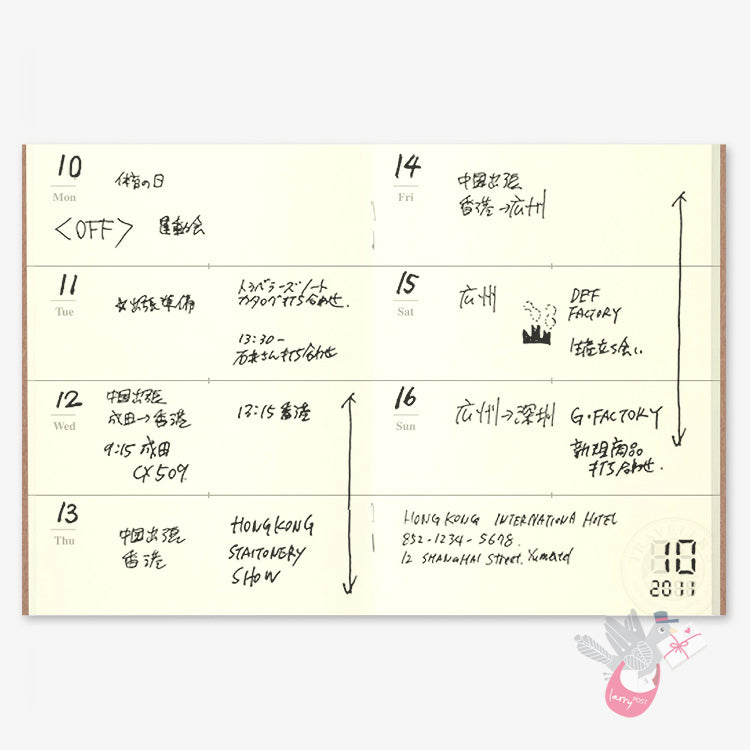 10
Mon
体育の日
<OFF> 運動会
11
Tue
出張準備
トラベラーズノート
カタログ打ち合わせ.
13:30-
石井さん打ち合わせ
12
Wed
中国出張
成田→香港
9:15 成田
CX 509.
13:15 香港
13
Thu
中国出張
香港
HONG KONG
STAITONERY
SHOW
14
Fri
中国出張
香港→広州
15
Sat
広州
DEF
FACTORY
立ち会い.
16
Sun
広州→深圳
G・FACTORY
新規商品
打ち合わせ.
HONG KONG INTERNATIONA HOTEL
852-1234-5678.
12 SHANGHAI Street.
TRAVELER'S
10
2011
larry POST